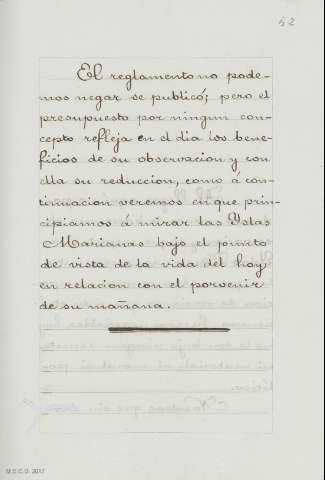 62
El reglamento no pode-
mos negar se publicó; pero el
presupuesto por ningun con-
cepto refleja en el dia los bene-
ficios de su observacion y con
ella su reduccion, como á con-
tinuacion veremos en que prin-
cipiamos á mirar las Yslas
Marianas bajo el punto
de vista de la vida del hoy
en relacion con el porvenir
de su mañana.
M.E.C.D. 2017